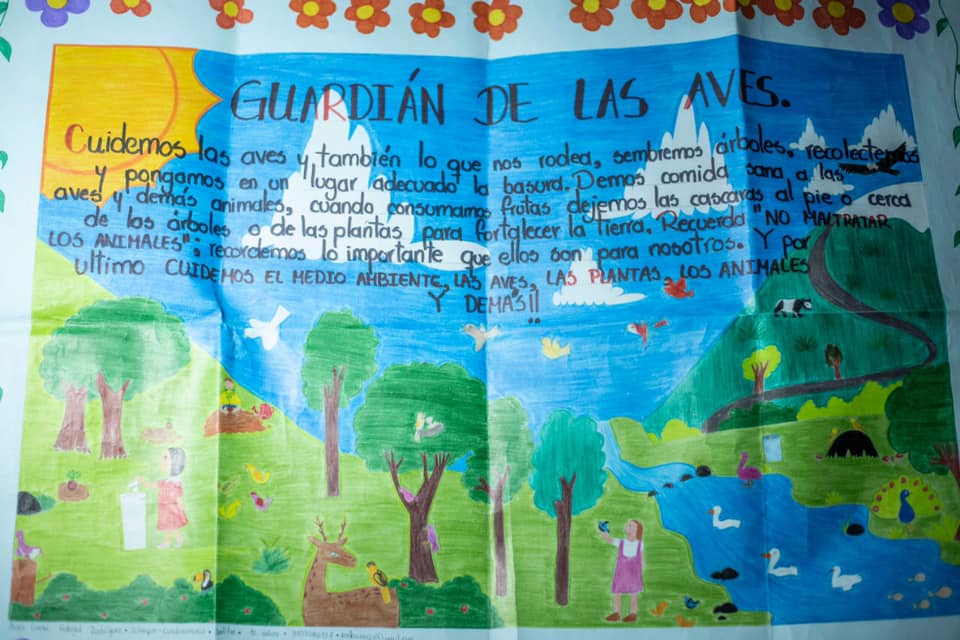 GUARDIÁN DE LAS AVES.
Cuidemos las aves y también lo que nos rodea, sembremos árboles, recolectemos
y pongamos en un lugar adecuado la basura. Demos comida sana a las
aves y demás animales, cuando consumamos frutas dejemos las cascaras al pie o cerca
de los árboles o de las plantas para fortalecer la tierra. Recuerda "NO MALTRATAR
LOS ANIMALES": recordemos lo importante que ellos son para nosotros. Y por
ultimo CUIDEMOS EL MEDIO AMBIENTE, LAS AVES, LAS PLANTAS, LOS ANIMALES
Y DEMÁS!!